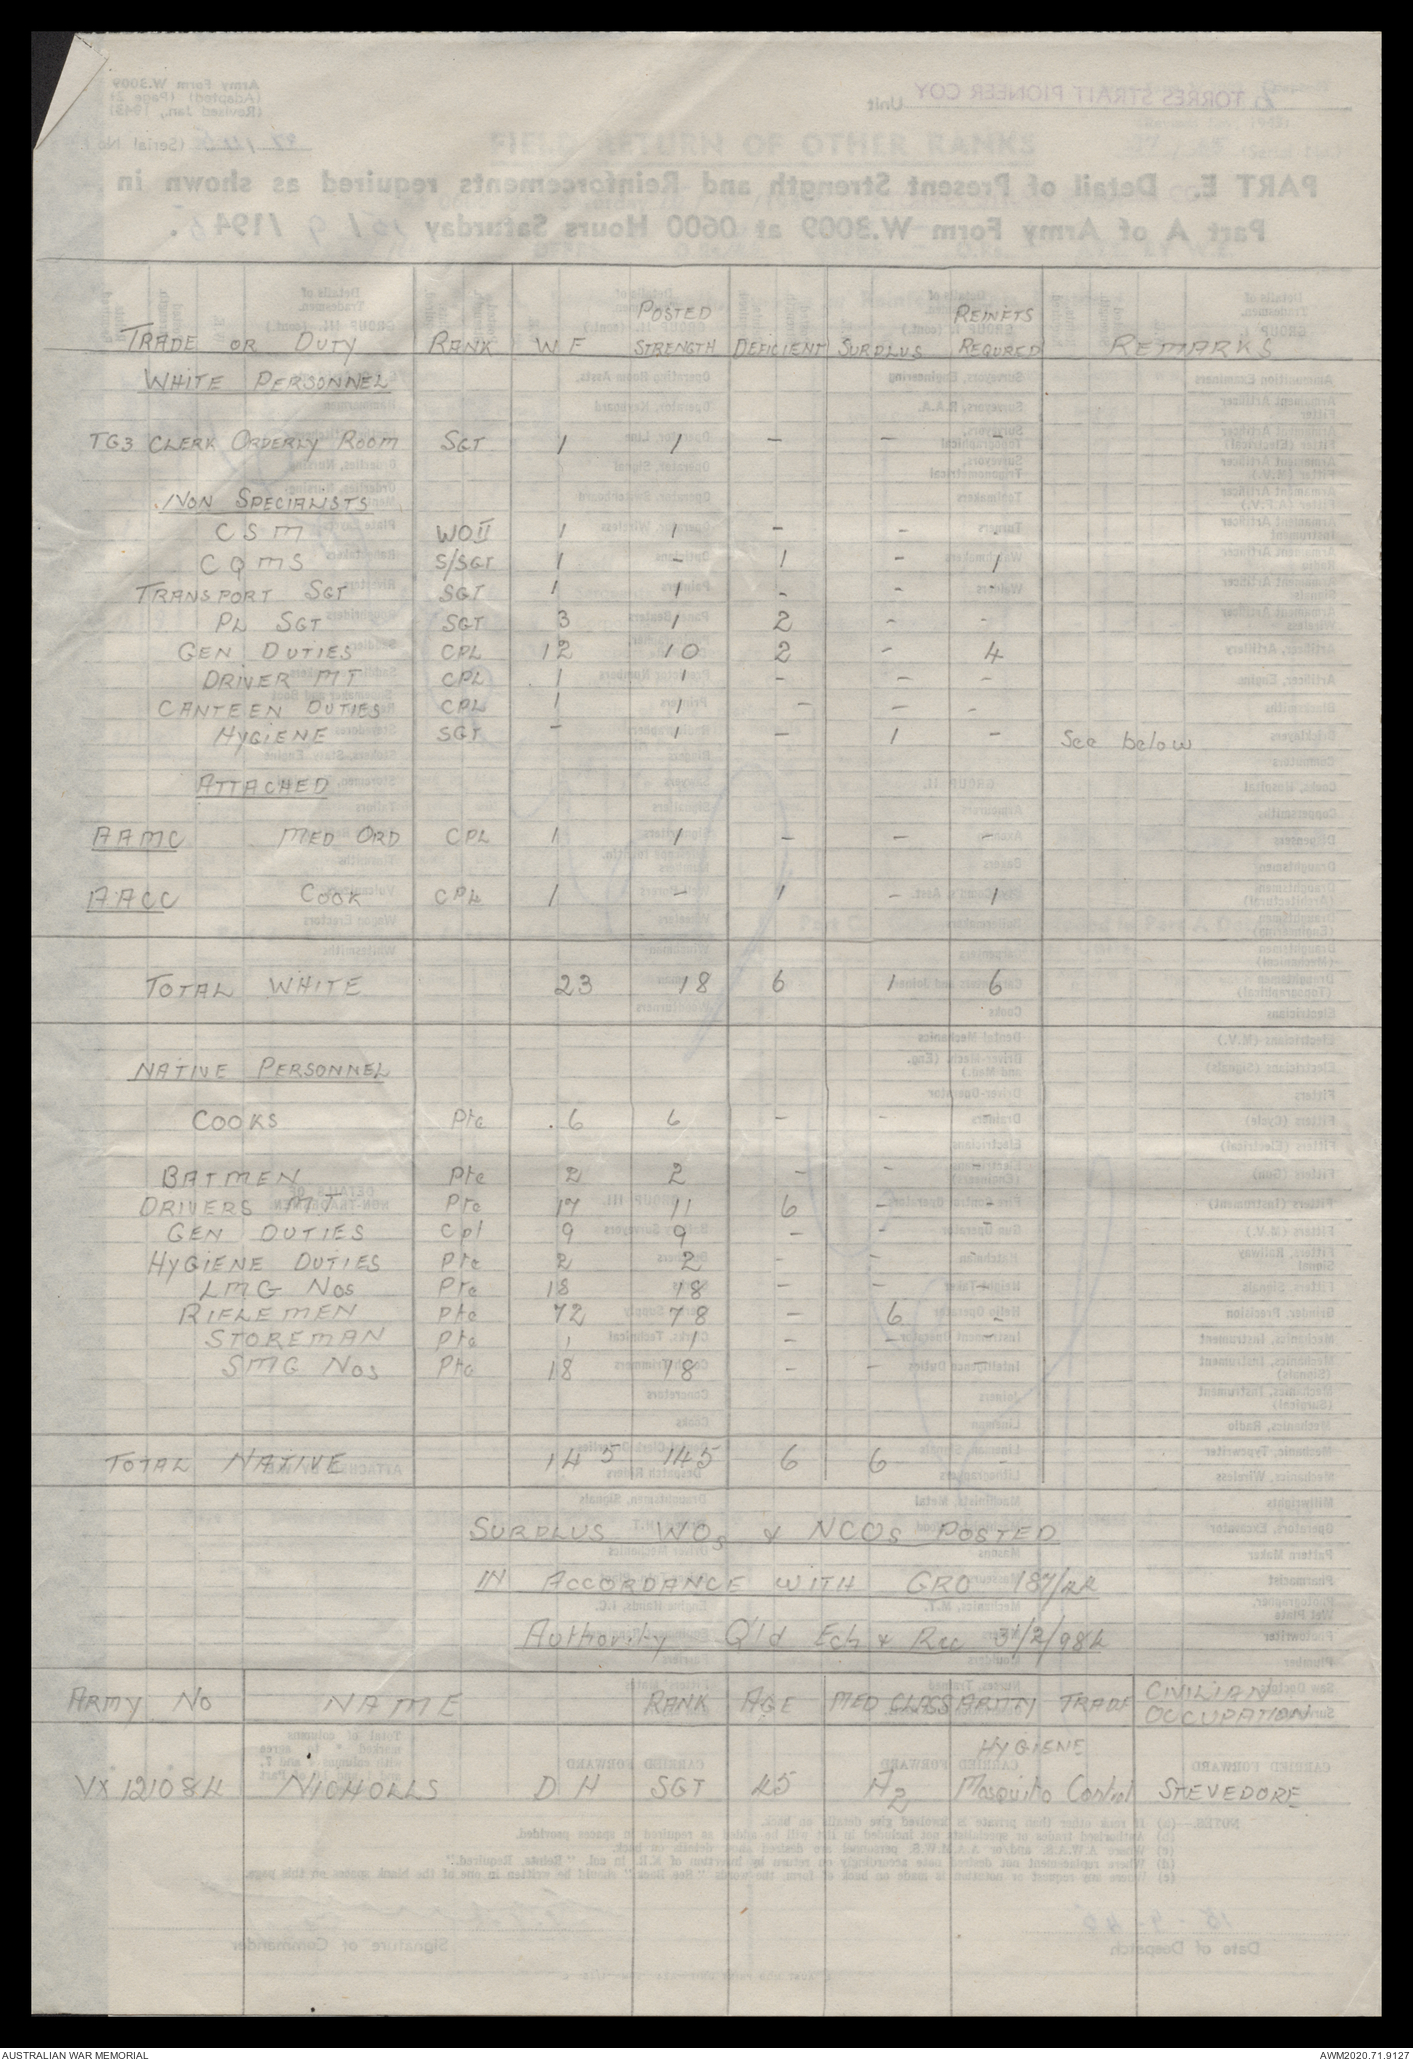 TRADE OR DUTY RANK WE POSTED STRENGTH DEFICIENT SURPLUS REINFTS REQURED REMARKS
WHITE PERSONNEL
TG3 CLERK ORDERLY ROOM SGT 1 1 - - -
NON SPECIALISTS
CSM WOII 1 1 - - -
CQMS S/SGT 1 - 1 - 1
TRANSPORT SGT SGT 1 1 - - -
PL SGT SGT 3 1 2 - -
GEN DUTIES CPL 12 10 2 - 4
DRIVER MT CPL 1 1 - - -
CANTEEN DUTIES CPL 1 1 - - -
HYGIENE SGT - 1 - 1 - See below
ATTACHED
AAMC MED ORD CPL 1 1 - - -
AACC COOK CPL 1 - 1 - 1
TOTAL WHITE 23 18 6 1 6
NATIVE PERSONNEL
COOKS Pte 6 6 - - -
BATMEN Pte 2 2 - - -
DRIVERS MT Pte 17 11 6 - -
GEN DUTIES Cpl 9 9 - - -
HYGIENE DUTIES Pte 2 2 - - -
LMG Nos Pte 18 18 - - -
RIFLEMEN Pte 72 78 - 6 -
STOREMAN Pte 1 1 - - -
SMG Nos Pte 18 18 - - -
TOTAL NATIVE 145 145 6 6 -
SURPLUS WOs & NCOs POSTED
IN ACCORDANCE WITH GRO 187/44
Authority Q'ld Ech & Rec 31/2/984
ARMY No NAME RANK AGE MED CLASS ARMY TRADE CIVILIAN OCCUPATION
VX 121084 NICHOLLS D H SGT 45 A2 HYGIENE Mosquito Control STEVEDORE
AUSTRALIAN WAR MEMORIAL
AWM2020.71.9127